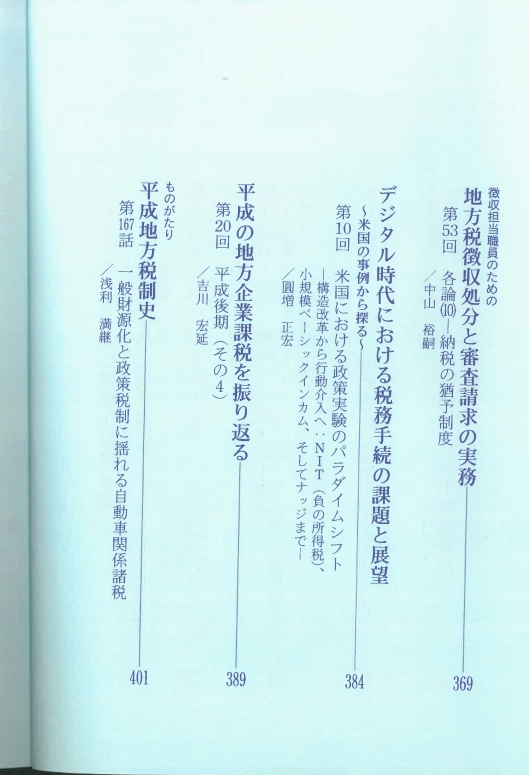 徴収担当職員のための
地方税徴収処分と審査請求の実務 369
第53回 各論⑽―納税の猶予制度
／中山 裕嗣
デジタル時代における税務手続の課題と展望
～米国の事例から探る～ 384
第10回 米国における政策実験のパラダイムシフト
―構造改革から行動介入へ：NIT（負の所得税）、
小規模ベーシックインカム、そしてナッジまで―
／圓増 正宏
平成の地方企業課税を振り返る 389
第20回 平成後期（その４）
／吉川 宏延
ものがたり
平成地方税制史 401
第167話 一般財源化と政策税制に揺れる自動車関係諸税
／浅利 満継